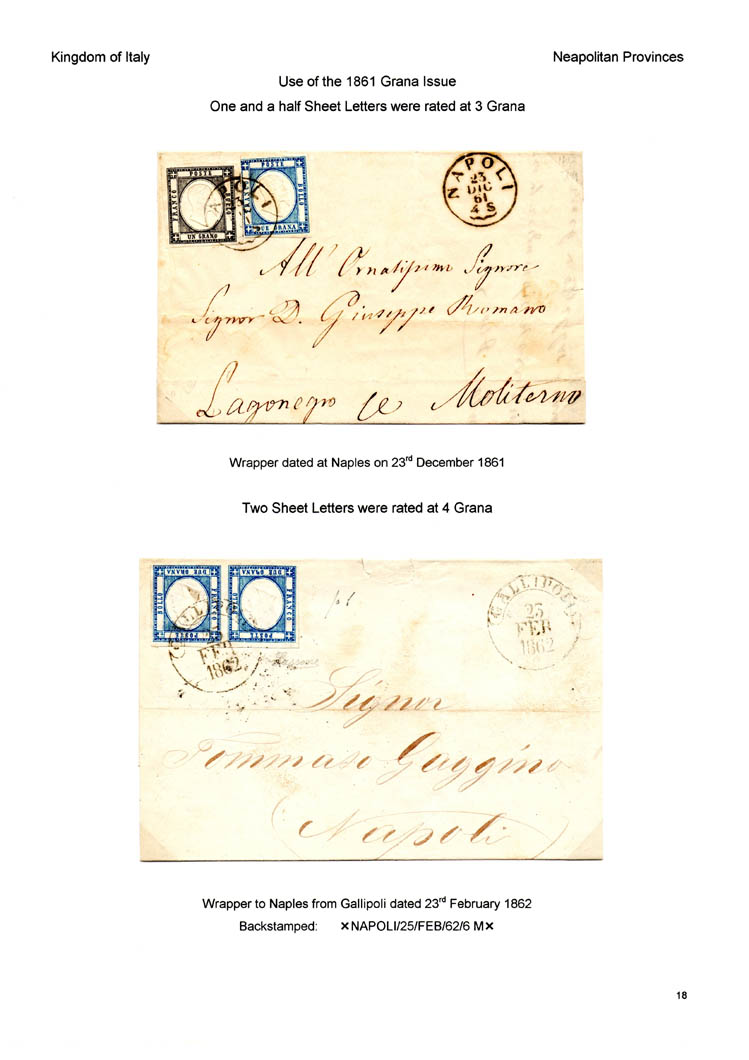 Kingdom of Italy
Neapolitan Provinces
Use of the 1861 Grana Issue
One and a half Sheet Letters were rated at 3 Grana
FRANCO POSTE BOLLO UN GRANO
POSTE BOLLO DUE GRANA
NAPOLI
23
DIC
61
4 S
All' Ornatissimo Signore
Signor D. Giuseppe Romano
Lagonegro Moliterno
Wrapper dated at Naples on 23rd December 1861
Two Sheet Letters were rated at 4 Grana
BOLLO DUE GRANA FRANCO POSTE
BOLLO DUE GRANA FRANCO POSTE
FEB
1862
GALLIPOLI
23
FEB
1862
Signor
Tommaso Gaggino
Napoli
Wrapper to Naples from Gallipoli dated 23rd February 1862
Backstamped: ×NAPOLI/25/FEB/62/6 M×
18